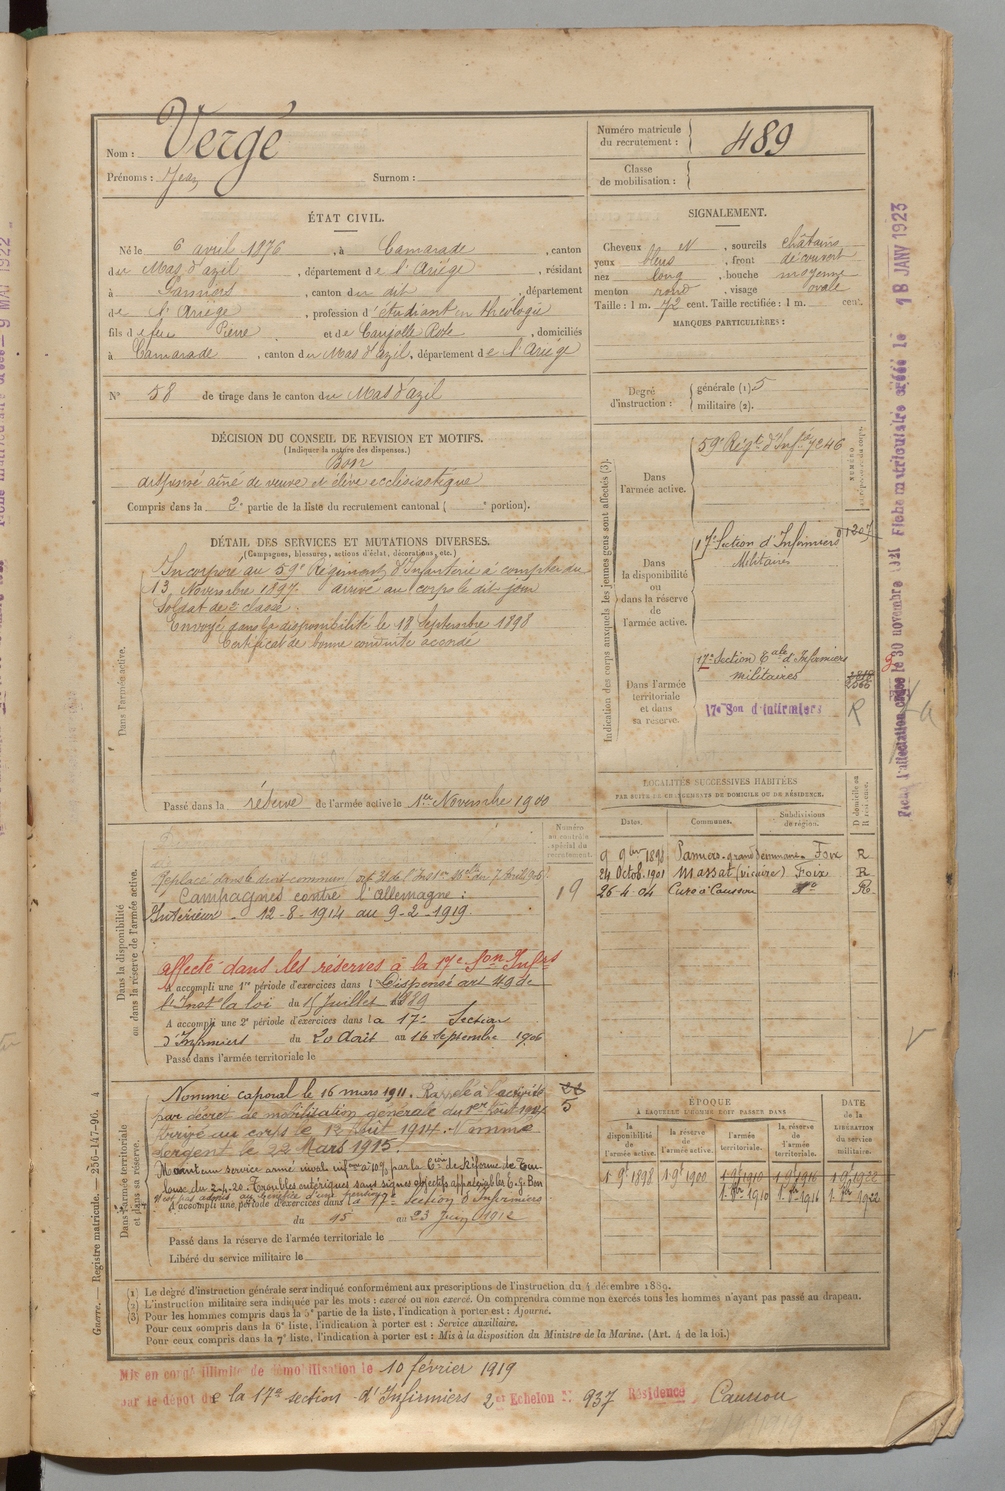 Nom : Vergé
Prénoms : Jean Surnom :
Numéro matricule du recrutement : 489
Classe de mobilisation :
ÉTAT CIVIL.
Né le 6 avril 1876, à Camarade, canton
du Mas d'azil, département de l'Ariège, résidant
à Pamiers, canton du dit, département
de l'Ariège, profession d'étudiant en théologie
fils de feu Pierre et de Caujolle Rose, domiciliés
à Camarade, canton du Mas d'azil, département de l'Ariège
N° 58 de tirage dans le canton du Mas d'azil
SIGNALEMENT.
Cheveux et N, sourcils châtains
yeux bleus, front découvert
nez long, bouche moyenne
menton rond, visage ovale
Taille : 1 m. 72 cent. Taille rectifiée : 1 m. cent.
MARQUES PARTICULIÈRES :
Degré d'instruction : générale (1). 5
militaire (2).
DÉCISION DU CONSEIL DE REVISION ET MOTIFS.
(Indiquer la nature des dispenses.)
Bon
dispensé aîné de veuve et élève ecclésiastique
Compris dans la 2e partie de la liste du recrutement cantonal ( e portion).
DÉTAIL DES SERVICES ET MUTATIONS DIVERSES.
(Campagnes, blessures, actions d'éclat, décorations, etc.)
Dans l'armée active.
Incorporé au 59e Régiment d'Infanterie à compter du
13 Novembre 1897. arrivé au corps le dit jour
Soldat de 2e classe.
Envoyé dans la disponibilité le 18 Septembre 1898
Certificat de bonne conduite accordé
Passé dans la réserve de l'armée active le 1er Novembre 1900
Indication des corps auxquels les jeunes gens sont affectés (3).
Dans l'armée active.
59e Régt d'Infie 7246
Dans la disponibilité ou dans la réserve de l'armée active.
17e Section d'Infirmiers
Militaires
Dans l'armée territoriale et dans sa réserve.
17e Section Eale d'Infirmiers
militaires
17e Son d'Infirmiers
LOCALITÉS SUCCESSIVES HABITÉES
PAR SUITE DE CHANGEMENTS DE DOMICILE OU DE RÉSIDENCE.
Dates. Communes. Subdivisions de région. D domicile ou R résidence.
9 9bre 1898 Pamiers-grand séminaire Foix R
24 Octob. 1901 Massat (vicaire) Foix R
26-4-04 Curé à Caussou do R
Dans la disponibilité ou dans la réserve de l'armée active.
Numéro au contrôle spécial du recrutement.
19
Campagnes contre l'Allemagne :
Intérieur - 12-8-1914 au 9-2-1919.
affecté dans les réserves à la 17e Son Infrs
A accompli une 1re période d'exercices dans l Dispensé art 49 de
l'Inst la loi du 15 Juillet 1889
A accompli une 2e période d'exercices dans la 17e Section
d'Infirmiers du 20 Août au 16 Septembre 1906
Passé dans l'armée territoriale le
Dans l'armée territoriale et dans sa réserve.
Nommé caporal le 16 mars 1911. Rappelé à l'activité
par décret de mobilisation générale du 1er Août 1914.
Arrivé au corps le 12 Août 1914. Nommé
sergent le 22 Mars 1915.
5
Maintenu service armé inval. infre à 10% par la Con de Réforme de Toulouse
du 2-4-20. Troubles entériques sans signes objectifs appréciables E.g. Bon
n'est pas admis au bénéfice d'une pension
A accompli une période d'exercices dans la 17e Section d'Infirmiers
du 15 au 23 Juin 1912
Passé dans la réserve de l'armée territoriale le
Libéré du service militaire le
ÉPOQUE
À LAQUELLE L'HOMME DOIT PASSER DANS
la disponibilité de l'armée active. la réserve de l'armée active. l'armée territoriale. la réserve de l'armée territoriale.
DATE de la LIBÉRATION du service militaire.
1 9e 1898 1 9e 1900 1 9e 1910 1 9e 1916 1 9e 1922
1. 8bre 1910 1. 8bre 1916 1. 8bre 1922
(1) Le degré d'instruction générale sera indiqué conformément aux prescriptions de l'instruction du 4 décembre 1889.
(2) L'instruction militaire sera indiquée par les mots : exercé ou non exercé. On comprendra comme non exercés tous les hommes n'ayant pas passé au drapeau.
(3) Pour les hommes compris dans la 5e partie de la liste, l'indication à porter est : Ajourné.
Pour ceux compris dans la 6e liste, l'indication à porter est : Service auxiliaire.
Pour ceux compris dans la 7e liste, l'indication à porter est : Mis à la disposition du Ministre de la Marine. (Art. 4 de la loi.)
Mis en congé illimité de démobilisation le 10 février 1919
par le dépôt de la 17e section d'Infirmiers 2e Echelon N° 937 Résidence Caussou
Guerre. — Registre matricule. — 256-147-96. 4
18 JANV 1923